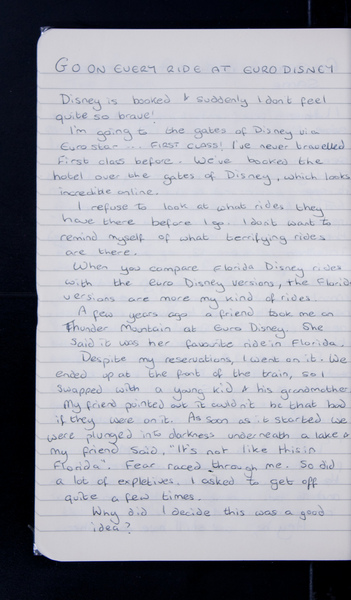 GO ON EVERY RIDE AT EURO DISNEY
Disney is booked & suddenly I dont feel
quite so brave!
I'm going to the gates of Disney via
Eurostar ... FIRST CLASS! I've never travelled
First class before. We've booked the
hotel over the gates of Disney, which looks
incredible online.
I refuse to look at what rides they
have there before I go. I dont want to
remind myself of what terrifying rides
are there.
When you compare Florida Disney rides
with the Euro Disney versions, the Florida
versions are more my kind of rides.
A few years ago a friend took me on
Thunder Mountain at Euro Disney. She
said it was her favourite ride in Florida.
Despite my reservations, I went on it. We
ended up at the front of the train, so I
swapped with a young kid & his grandmother.
My friend pointed out it couldn't be that bad
if they were on it. As soon as it started we
were plunged into darkness underneath a lake &
my friend said, "It's not like this in
Florida". Fear raced through me. So did
a lot of expletives. I asked to get off
quite a few times.
Why did I decide this was a good
idea?